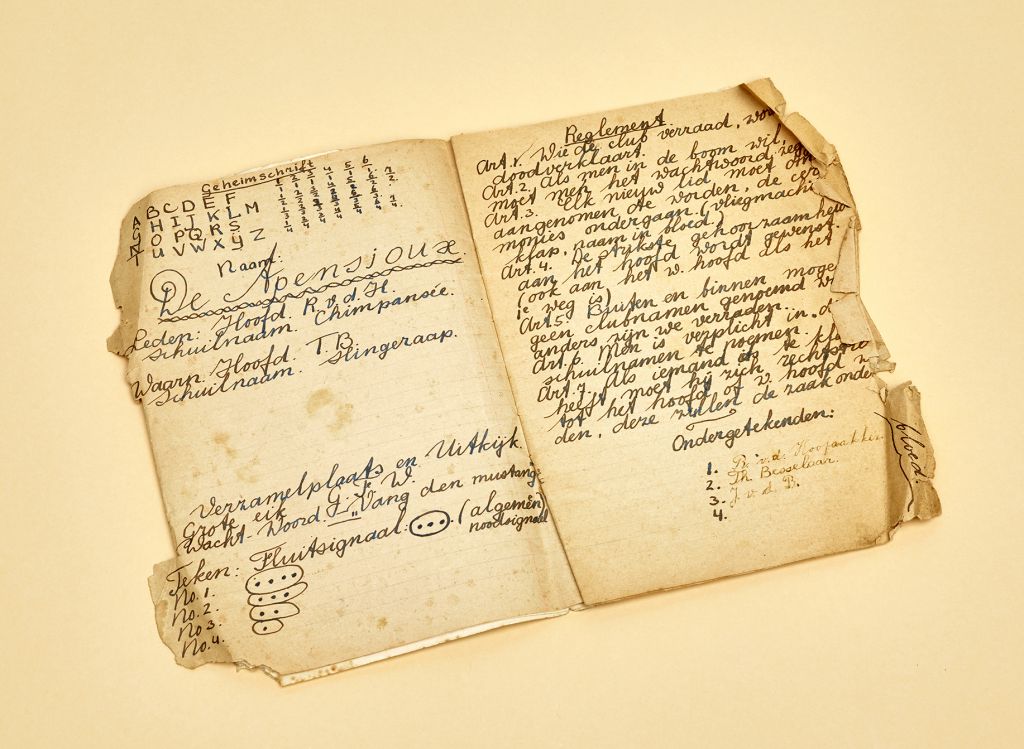 Geheimschrift
A B C D E F
G H I J K L M
N O P Q R S
T U V W X Y Z
1 2 3 4 5 6
Naam:
De Apensjoux.
Leden: Hoofd. R.v.d.H.
Schuilnaam. Chimpansée.
Waarn. Hoofd. T.B.
Schuilnaam. Slingeraap.
Verzamelplaats en Uitkijk.
Grote eik
Wacht-Woord. Vang den mustang.
Teken: Fluitsignaal: (algemeen
noodsignaal
No. 1.
No. 2.
No 3.
No. 4.
Reglement.
Art. 1. Wie de club verraad,
doodverklaart.
Art. 2. Als men in de boom wil,
moet men het wachtwoord
Art. 3. Elk nieuw lid moet om
aangenomen te worden, de
monies ondergaan. (vliegmachi
klap, naam in bloed.)
Art. 4. De strikste gehoorzaamhe
aan het hoofd wordt gewenst.
(ook aan het w. hoofd als het
ie weg is)
Art. 5. Buiten en binnen moge
geen clubnamen genoemd
anders zijn we verraden.
Art. 6. Men is verplicht in. d
schuilnamen te noemen.
Art. 7. Als iemand iets te kla
heeft, moet hij zich rechtstre
tot het hoofd of w. hoofd
den, deze zullen de zaak onder
Ondergetekenden:
1. R. v.d. Hoofaakker
2. Th. Besselaar.
3. J. v. d. B.
4.
bloed.